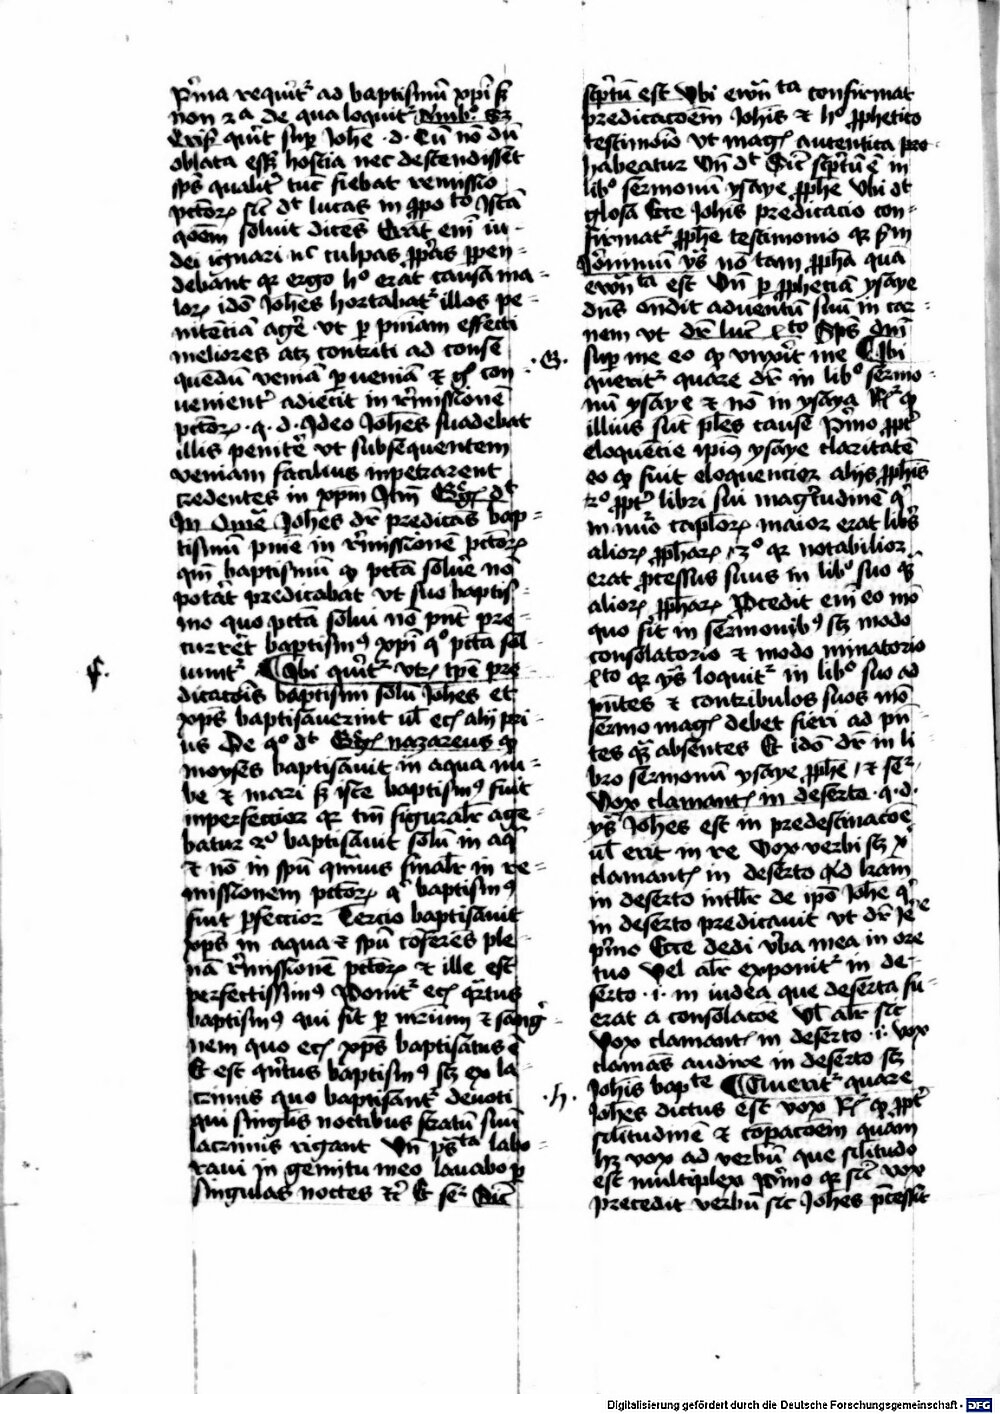 p'ma requirit' ad baptismū xp̄i s3
non 2a de qua loquit' Amb'o S3
Cris' querit sup' Johē · d · Cū nō dū
oblata ess3 hostia nec descendiss3
sp̄s qualit' tūc fiebat remissio
pctōr3 sic dt lucas in
qōem soluit dicēs Erāt em̄ iu-
dei ignari nc culpas pp'as ppen-
debant qr ergo hoc erat causa ma-
lor3 idō Johes hortabat' illos pe-
nitētiā agē vt per pn̄iam effecti
meliores atq3 contriti ad conse
quēdū veniā pueniā et con
uenient' adiecit in r'missionē
pctōr3 · q · d · Ideo Johēs suadebat
illis penitē vt subsequentem
veniam facilius inpetrarent
credentes in xp̄m Ihm̄ dt
In Johēs dr̄ predicās bap-
tismū pn̄ie in r'missionē pctōr3
qm̄ baptismū q pctā soluē nō
potāt predicabat vt suo baptis
mo quo pctā solui nō pn̄t pre-
currēt baptismus xp̄i quo pctā sol
uunt' Ubi querit' vt3 tpē pre-
dicatōis baptismi solū Johēs et
xp̄s baptisauerint ul' ec̄ alij pri-
us De quo dt Greg' nazareus q
moyses baptisauit in aqua nu-
be et mari s3 iste baptismus fuit
inperfectior qr tm̄ figuralr' age-
batur 2o baptisauit solū in aqua
et nō in spū finalr' in re-
missionem pctōr3 baptismus
fuit perfectior Tercio baptisauit
xp̄s in aqua et spū cōferēs ple-
nā r'missionē pctōr3 et ille est
perfectissimus Ponit' ec̄ quartus
baptismus qui fit per mr̄ium et sang'
nem quo ec̄ xp̄s baptisatus ē
Et est quintus baptismus s3 ex la-
crimis quo baptisant' deuoti
qui singulis noctibus stratū suū
lacrimis rigant Vn̄ ps̄ta labo
raui in gemitu meo lauabo p
singulas noctes etc Et se' Sic
scptū est Vbi ewan̄ta confirmat
predicacōem Johis et hoc pphetico
testimōio vt mag3 autentica pro-
habeatur Vn̄ dt Sic scptū ē in
libo sermonū ysaye pphe Vbi dt
glosa Ecce Johis predicacio con-
firmat' pphe testimonio qr s'm
Jeronimū ys' nō tam ppha quā
ewan̄ta est Vn̄ per pphetiā ysaye
dn̄s ondit aduentū suū in car-
nem vt dr̄ luc' 4to Sp̄s dn̄i
sup me eo q vnxit me Ubi
querit' quare dr̄ in libo sermo-
nū ysaye et nō in ysaya Rr q
illius sūt ples cause P'mo ppt'
eloquētie ipius ysaye claritatē
eo q fuit eloquencior alijs pphis
2o ppt' libri sui magnitudinē
in nūo caplōr3 maior erat libris
alior3 pphar3 3o qr notabilior
erat pcessus suus in libo suo q3
alior3 pphar3 Pcedit em̄ eo mō
quo fit in sermonibus s3 modo
consolatorio et modo minatorio
4to qr ys' loquit' in libo suo ad
pn̄tes et contribulos suos mō
sermo mag3 debet fieri ad pn̄-
tes q3 absentes Et idō dr̄ in li
bro sermonū ysaye pphe / et se'
Vox clamant3 in deserto · q · d ·
ys' Johes est in predestinacōe
ul' erit in re Vox verbi s3 xp̄i
clamant3 in deserto
in deserto intllr' de ipō Johe
in deserto predicauit vt dr̄ Je'e
p'mo Ecce dedi v'ba mea in ore
tuo Vel alr' exponit' in de-
serto · i · in iudea que deserta fu-
erat a consolacōe Vl' alr' sic
Vox clamant3 in deserto · i · vox
clamās audire in deserto s3
Johis bapte Querit' quare
Johes dictus est vox Rr q ppt'
silitudinē et cōpacōem quam
h3 vox ad verbū que silitudo
est multiplex P'mo qr sic vox
precedit verbū sic Johes p'cessit
f.
· g ·
· h ·
Digitalisierung gefördert durch die Deutsche Forschungsgemeinschaft - DFG